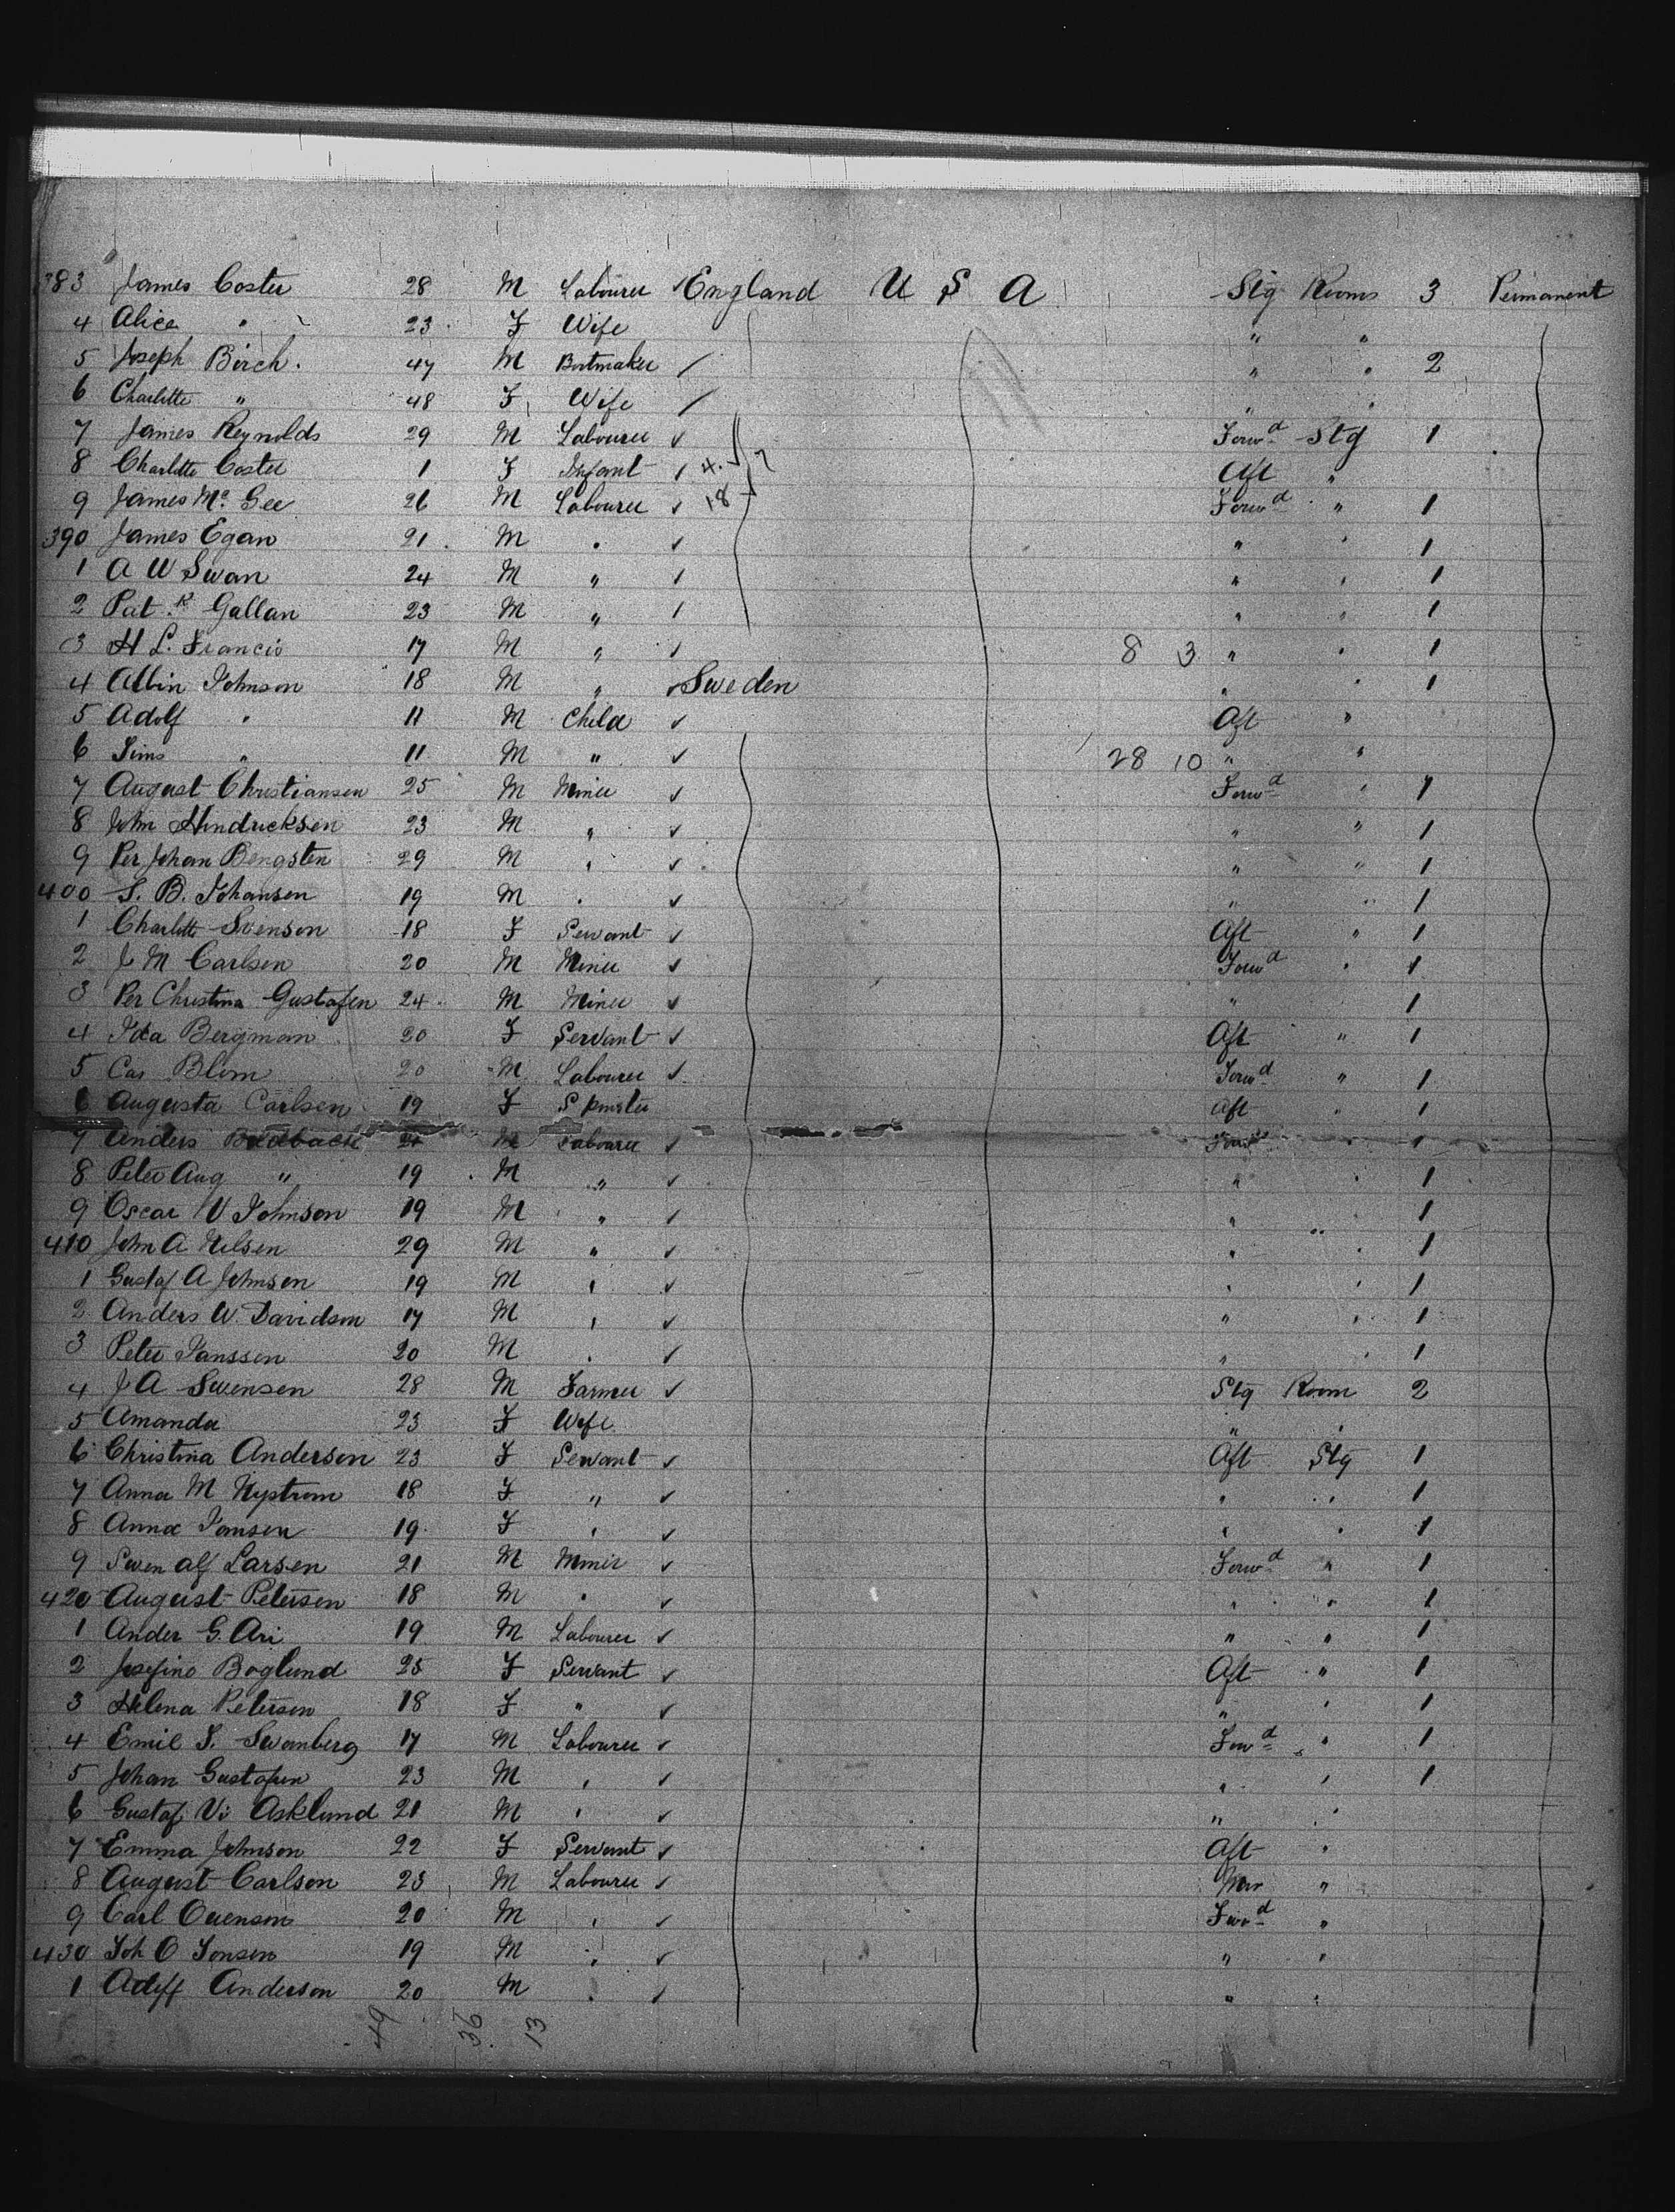 383 James Coster 28 M Labourer ✓ England U S A Stg Rooms 3 Permanent
4 Alice " 23 F Wife " "
5 Joseph Birch. 47 M Bootmaker / " " 2
6 Charlotte " 48 F Wife / " "
7 James Reynolds 29 M Labourer ✓ Forwd Stg 1
8 Charlotte Coster 1 F Infant ✓ 4. Aft "
9 James Mc Gee 26 M Labourer ✓ 18 Forwd " 1
390 James Egan 21 M " ✓ " " 1
1 A W Swan 24 M " ✓ " " 1
2 Patk Gallan 23 M " / " " 1
3 H L. Francis 17 M " ✓ 8 3 " " 1
4 Albin Johnson 18 M " ✓ Sweden " " 1
5 Adolf " 11 M Child ✓ Aft "
6 " 11 M " ✓ 28 10 " "
7 August Christiansen 25 M Miner ✓ Forwd " 1
8 John Hindricksen 23 M " ✓ " " 1
9 Per Johan Bengsten 29 M " ✓ " " 1
400 S. B. Johansen 19 M " ✓ " " 1
1 Charlotte Svensen 18 F Servant ✓ Aft " 1
2 J M Carlsen 20 M Miner ✓ Forwd " 1
3 Per Christina Gustafsen 24 M Miner ✓ " 1
4 Ida Bergman 20 F Servant ✓ Aft " 1
5 Cas Blom 20 M Labourer ✓ Forwd " 1
6 Augusta Carlsen 19 F Spinster Aft " 1
7 Anders M Labourer ✓ Forwd 1
8 Peter Aug " 19 M " ✓ " " 1
9 Oscar V Johnson 19 M " ✓ " " 1
410 John A Nilsen 29 M " ✓ " " 1
1 Gustaf A Johnsen 19 M " ✓ " " 1
2 Anders W. Davidson 17 M " ✓ " " 1
3 Peter Janssen 20 M " ✓ " " 1
4 J A Swensen 28 M Farmer ✓ Stg Room 2
5 Amanda 23 F Wife " "
6 Christina Andersen 23 F Servant ✓ Aft Stg 1
7 Anna M Nystrom 18 F " ✓ " " 1
8 Anna Jansen 19 F " ✓ " " 1
9 Swen Alf Larsen 21 M Miner ✓ Forwd " 1
420 August Petersen 18 M " ✓ " " 1
1 Ander G. Ari 19 M Labourer ✓ " " 1
2 Josefino Boglund 25 F Servant ✓ Aft " 1
3 Helena Petersen 18 F " ✓ " " 1
4 Emil S. Swanberg 17 M Labourer ✓ Forwd " 1
5 Johan Gustafsen 23 M " ✓ " " 1
6 Gustaf Vi Asklund 21 M " ✓ " "
7 Emma Johnson 22 F Servant ✓ Aft "
8 August Carlson 23 M Labourer ✓ "
9 Carl Ouenson 20 M " ✓ Forwd "
430 Joh O Jonsen 19 M " ✓ " "
1 Adolf Anderson 20 M " ✓ " "
49 36 13